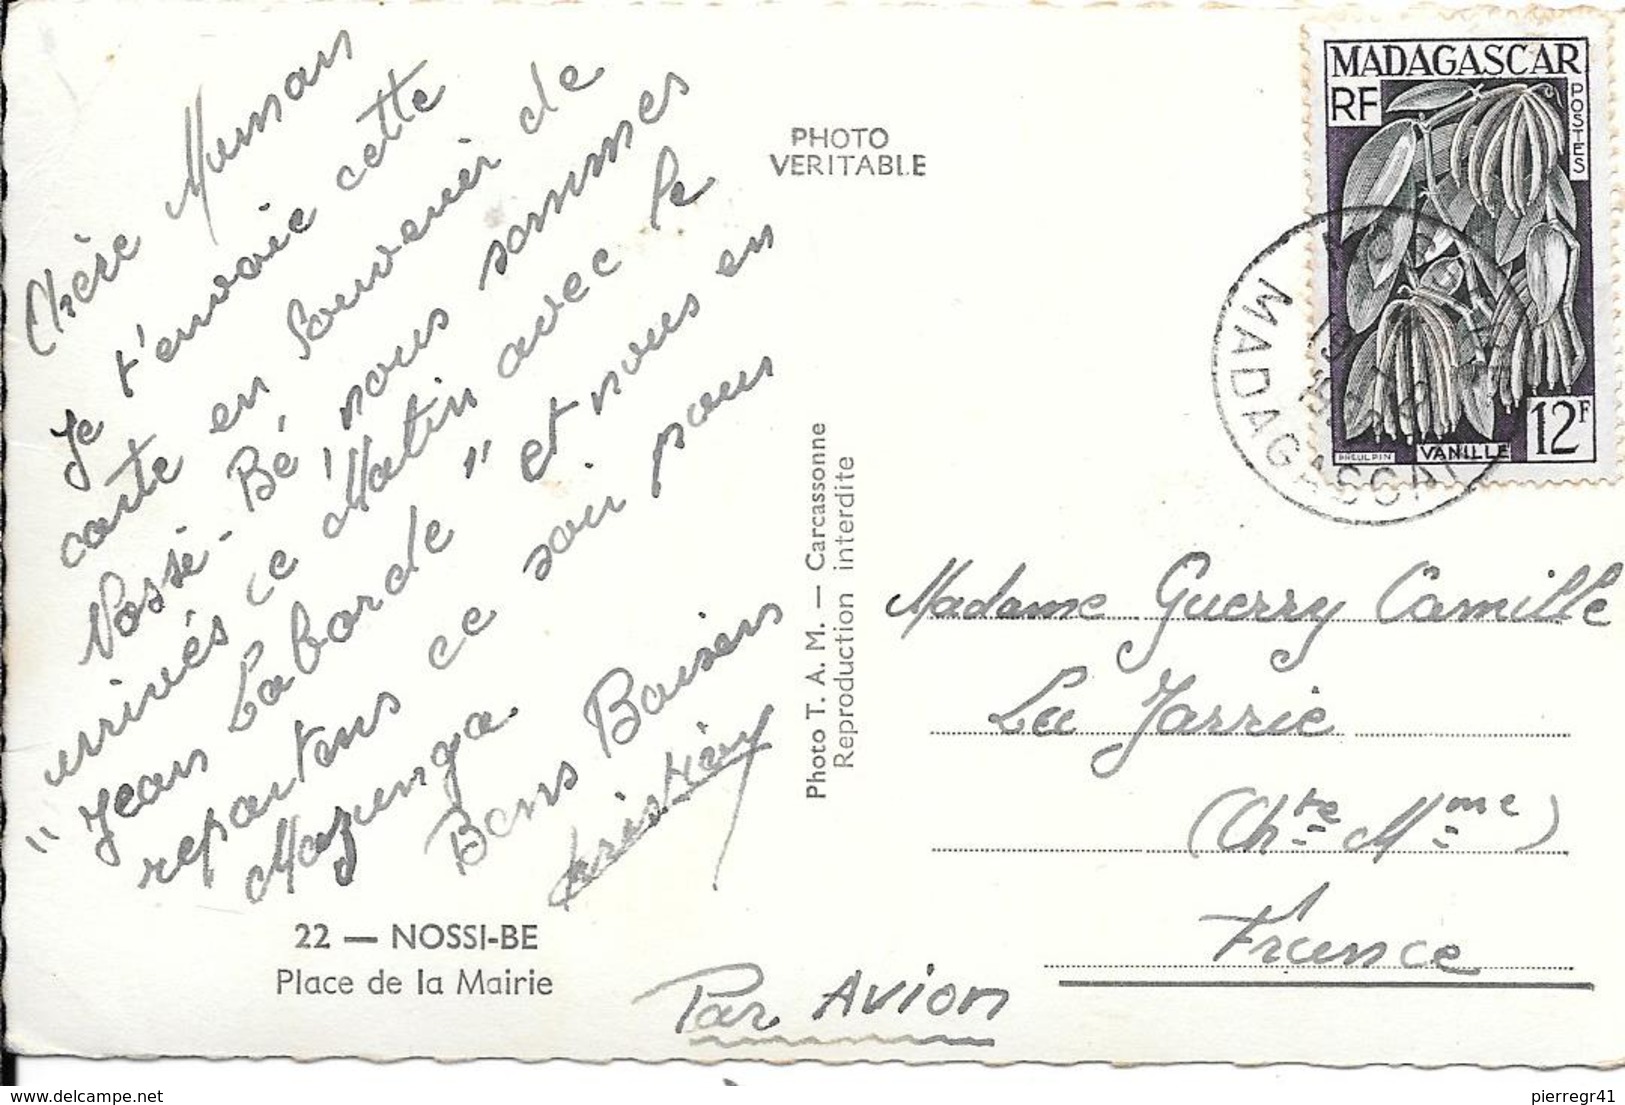 Chère Maman
Je t'envoie cette
carte en Souvenir de
Nossi-Bé nous sommes
arrivés ce Matin avec le
"Jean Laborde" et nous en
repartens ce soir pour
Majunga.
Bons Baisers
22 — NOSSI-BE
Place de la Mairie
PHOTO
VERITABLE
Photo T. A. M. — Carcassonne
Reproduction interdite
MADAGASCAR
RF
POSTES
12F
VANILLE
MADAGASCAR
Madame Guerry Camille
La Jarrie
(Chte Mme)
France
Par Avion
delcampe.net
pierregr41